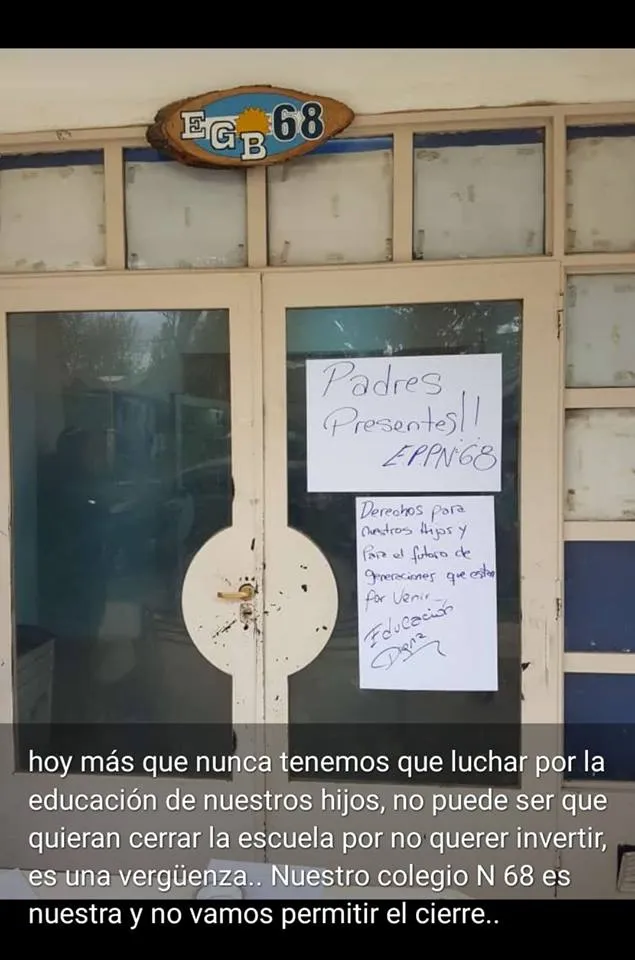 EGB 68
Padres
Presentes!!
E.P.P.N:68
Derechos para
nuestros Hijos y
Para el futuro de
generaciones que estan
por Venir
Educación
Digna
hoy más que nunca tenemos que luchar por la
educación de nuestros hijos, no puede ser que
quieran cerrar la escuela por no querer invertir,
es una vergüenza.. Nuestro colegio N 68 es
nuestra y no vamos permitir el cierre..